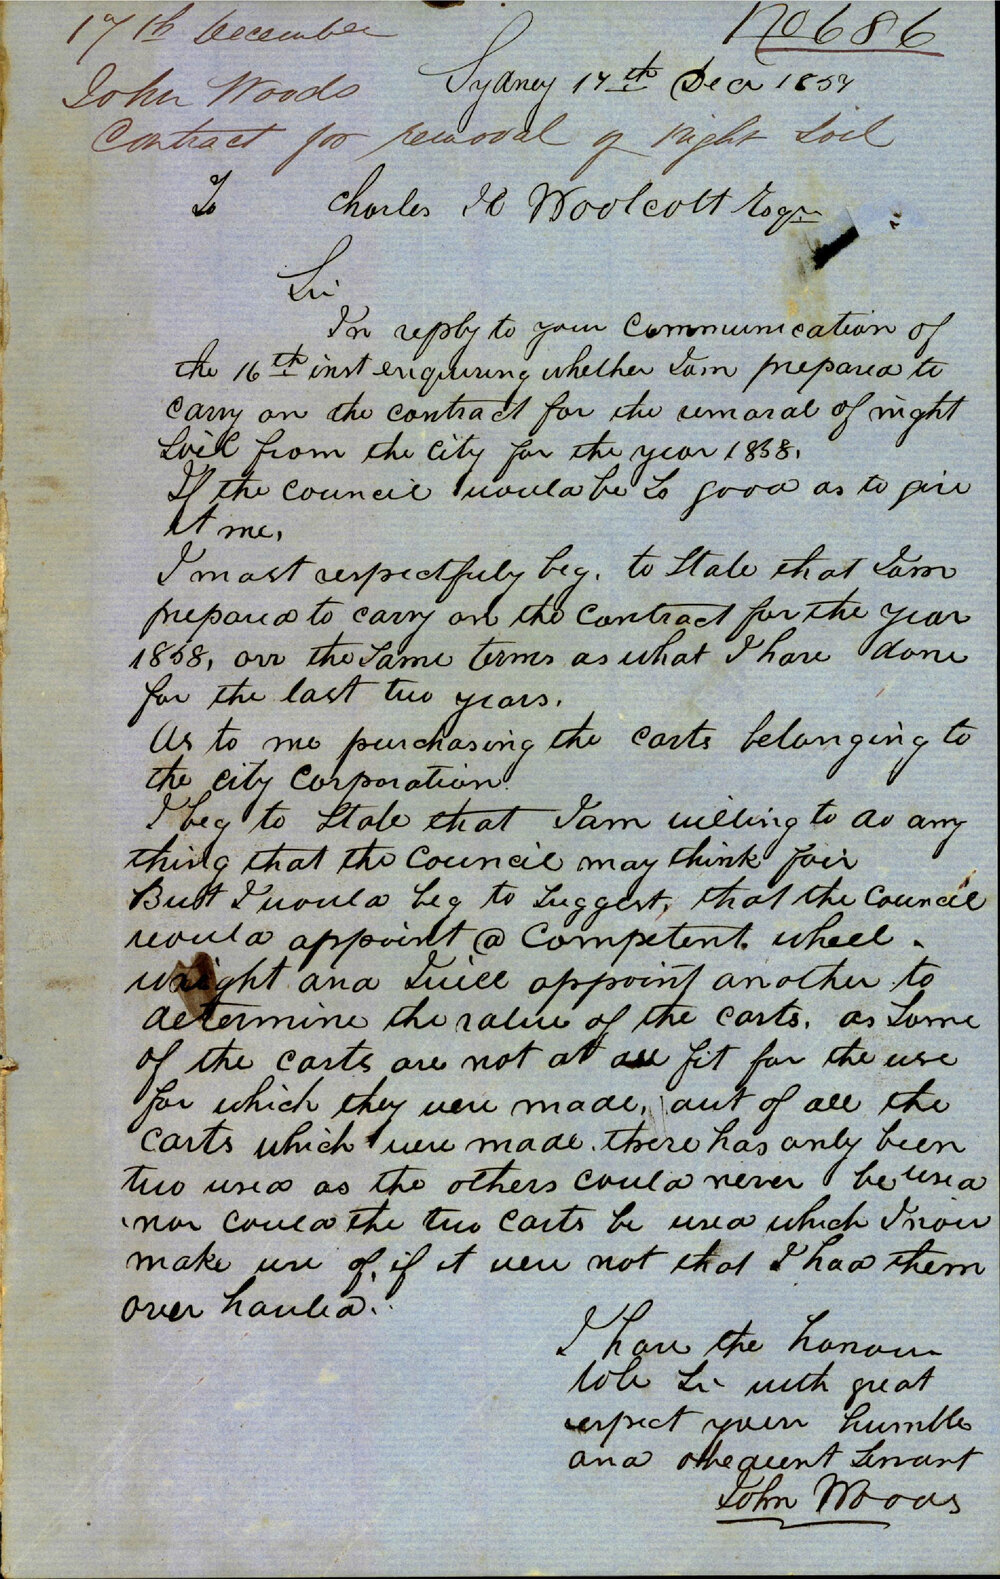 17th December
No 686
John Woods
Sydney 17th Decr 1857
Contract for removal of Night Soil
To Charles H Woolcott Esqr
Sir
In reply to your Communication of
the 16th inst enquiring whether I am prepared to
carry on the contract for the removal of night
Soil from the City for the year 1858.
If the Council would be So good as to give
it me,
I most respectfuly beg. to State that I am
prepared to carry on the Contract for the year
1858, on the Same terms as what I have done
for the last two years.
As to me purchasing the carts belonging to
the City Corporation.
I beg to State that I am willing to do any
thing that the Council may think fair
But I would beg to Suggest, that the Council
would appoint @ Competent. wheel -
wright and I will appoint another to
determine the value of the carts. as Some
of the carts are not at all fit for the use
for which they were made, out of all the
carts which were made. there has only been
two used as the others could never be used
nor could the two carts be used which I now
make use of, if it were not that I had them
over hauled.
I have the honour
to be Sir with great
respect your humble
and obedient Servant
John Woods